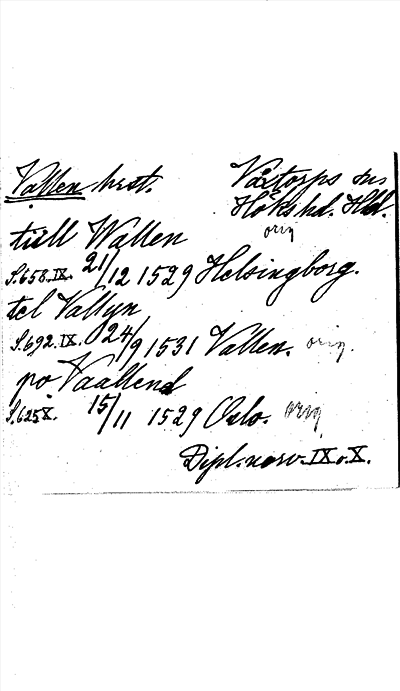 Vallen hrst. Våxtorps sn
Höks hd. Hld.
tiill Wallen orig
S.658.IX. 21/12 1529 Helsingborg.
tel Vallyn
S.692.IX. 24/9 1531 Vallen. orig.
po Vaallend
S.625X. 15/11 1529 Oslo. orig
Dipl. norv. IX o. X.